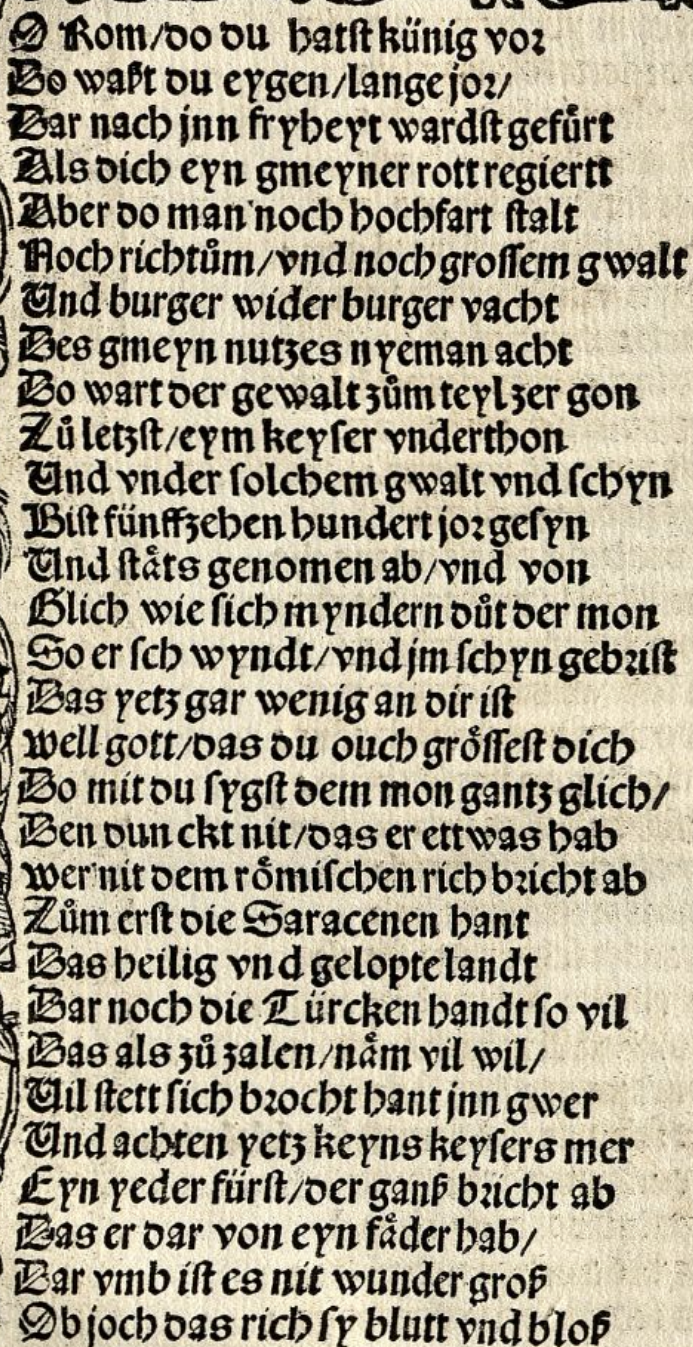 O Rom/do du hatst künig vor
Do waßt du eygen/lange jor/
Dar nach jnn fryheyt wardst gefuͤrt
Als dich eyn gmeyner rott regiertt
Aber do man noch hochfart stalt
Noch richtuͦm/vnd noch grossem gwalt
Und burger wider burger vacht
Des gmeyn nutzes nyeman acht
Do wart der gewalt zuͦm teyl zer gon
Zuͦ letzst/eym keyser vnderthon
Und vnder solchem gwalt vnd schyn
Bist fünffzehen hundert jor gesyn
Und staͤts genomen ab/vnd von
Glich wie sich myndern duͦt der mon
So er schwyndt/vnd jm schyn gebrist
Das yetz gar wenig an dir ist
well gott/das du ouch groͤssest dich
Do mit du sygst dem mon gantz glich/
Den dunckt nit/das er ettwas hab
wer nit dem roͤmischen rich bricht ab
Zuͦm erst die Saracenen hant
Das heilig vnd gelopte landt
Dar noch die Türcken handt so vil
Das als zuͦ zalen/naͤm vil wil/
Vil stett sich brocht hant jnn gwer
Und achten yetz keyns keysers mer
Eyn yeder fürst/der ganß bricht ab
Das er dar von eyn faͤder hab/
Dar vmb ist es nit wunder groß
Ob joch das rich sy blutt vnd bloß